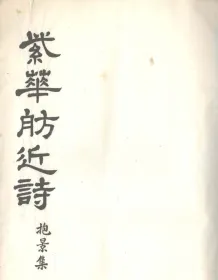 紫華舫近詩
抱景集